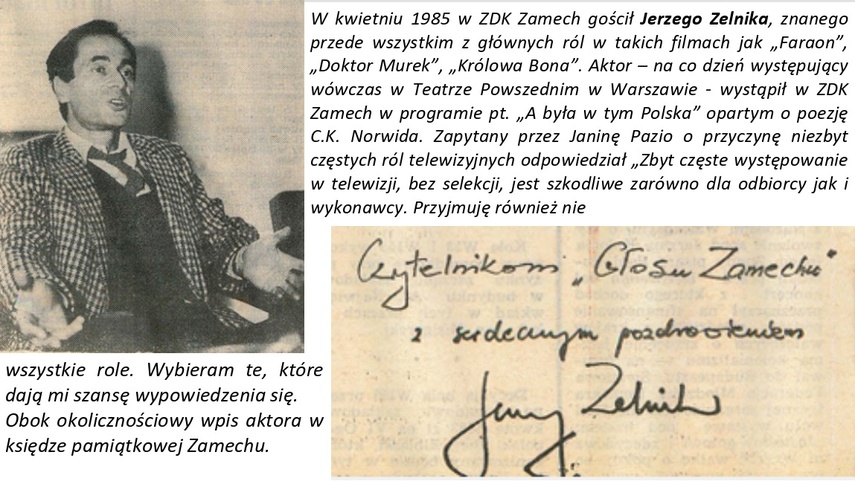 W kwietniu 1985 w ZDK Zamech gościł Jerzego Zelnika, znanego
przede wszystkim z głównych ról w takich filmach jak „Faraon”,
„Doktor Murek”, „Królowa Bona”. Aktor – na co dzień występujący
wówczas w Teatrze Powszednim w Warszawie - wystąpił w ZDK
Zamech w programie pt. „A była w tym Polska” opartym o poezję
C.K. Norwida. Zapytany przez Janinę Pazio o przyczynę niezbyt
częstych ról telewizyjnych odpowiedział „Zbyt częste występowanie
w telewizji, bez selekcji, jest szkodliwe zarówno dla odbiorcy jak i
wykonawcy. Przyjmuję również nie
wszystkie role. Wybieram te, które
dają mi szansę wypowiedzenia się.
Obok okolicznościowy wpis aktora w
księdze pamiątkowej Zamechu.
Czytelnikom „Głosu Zamechu”
z serdecznym pozdrowieniem
Jerzy Zelnik